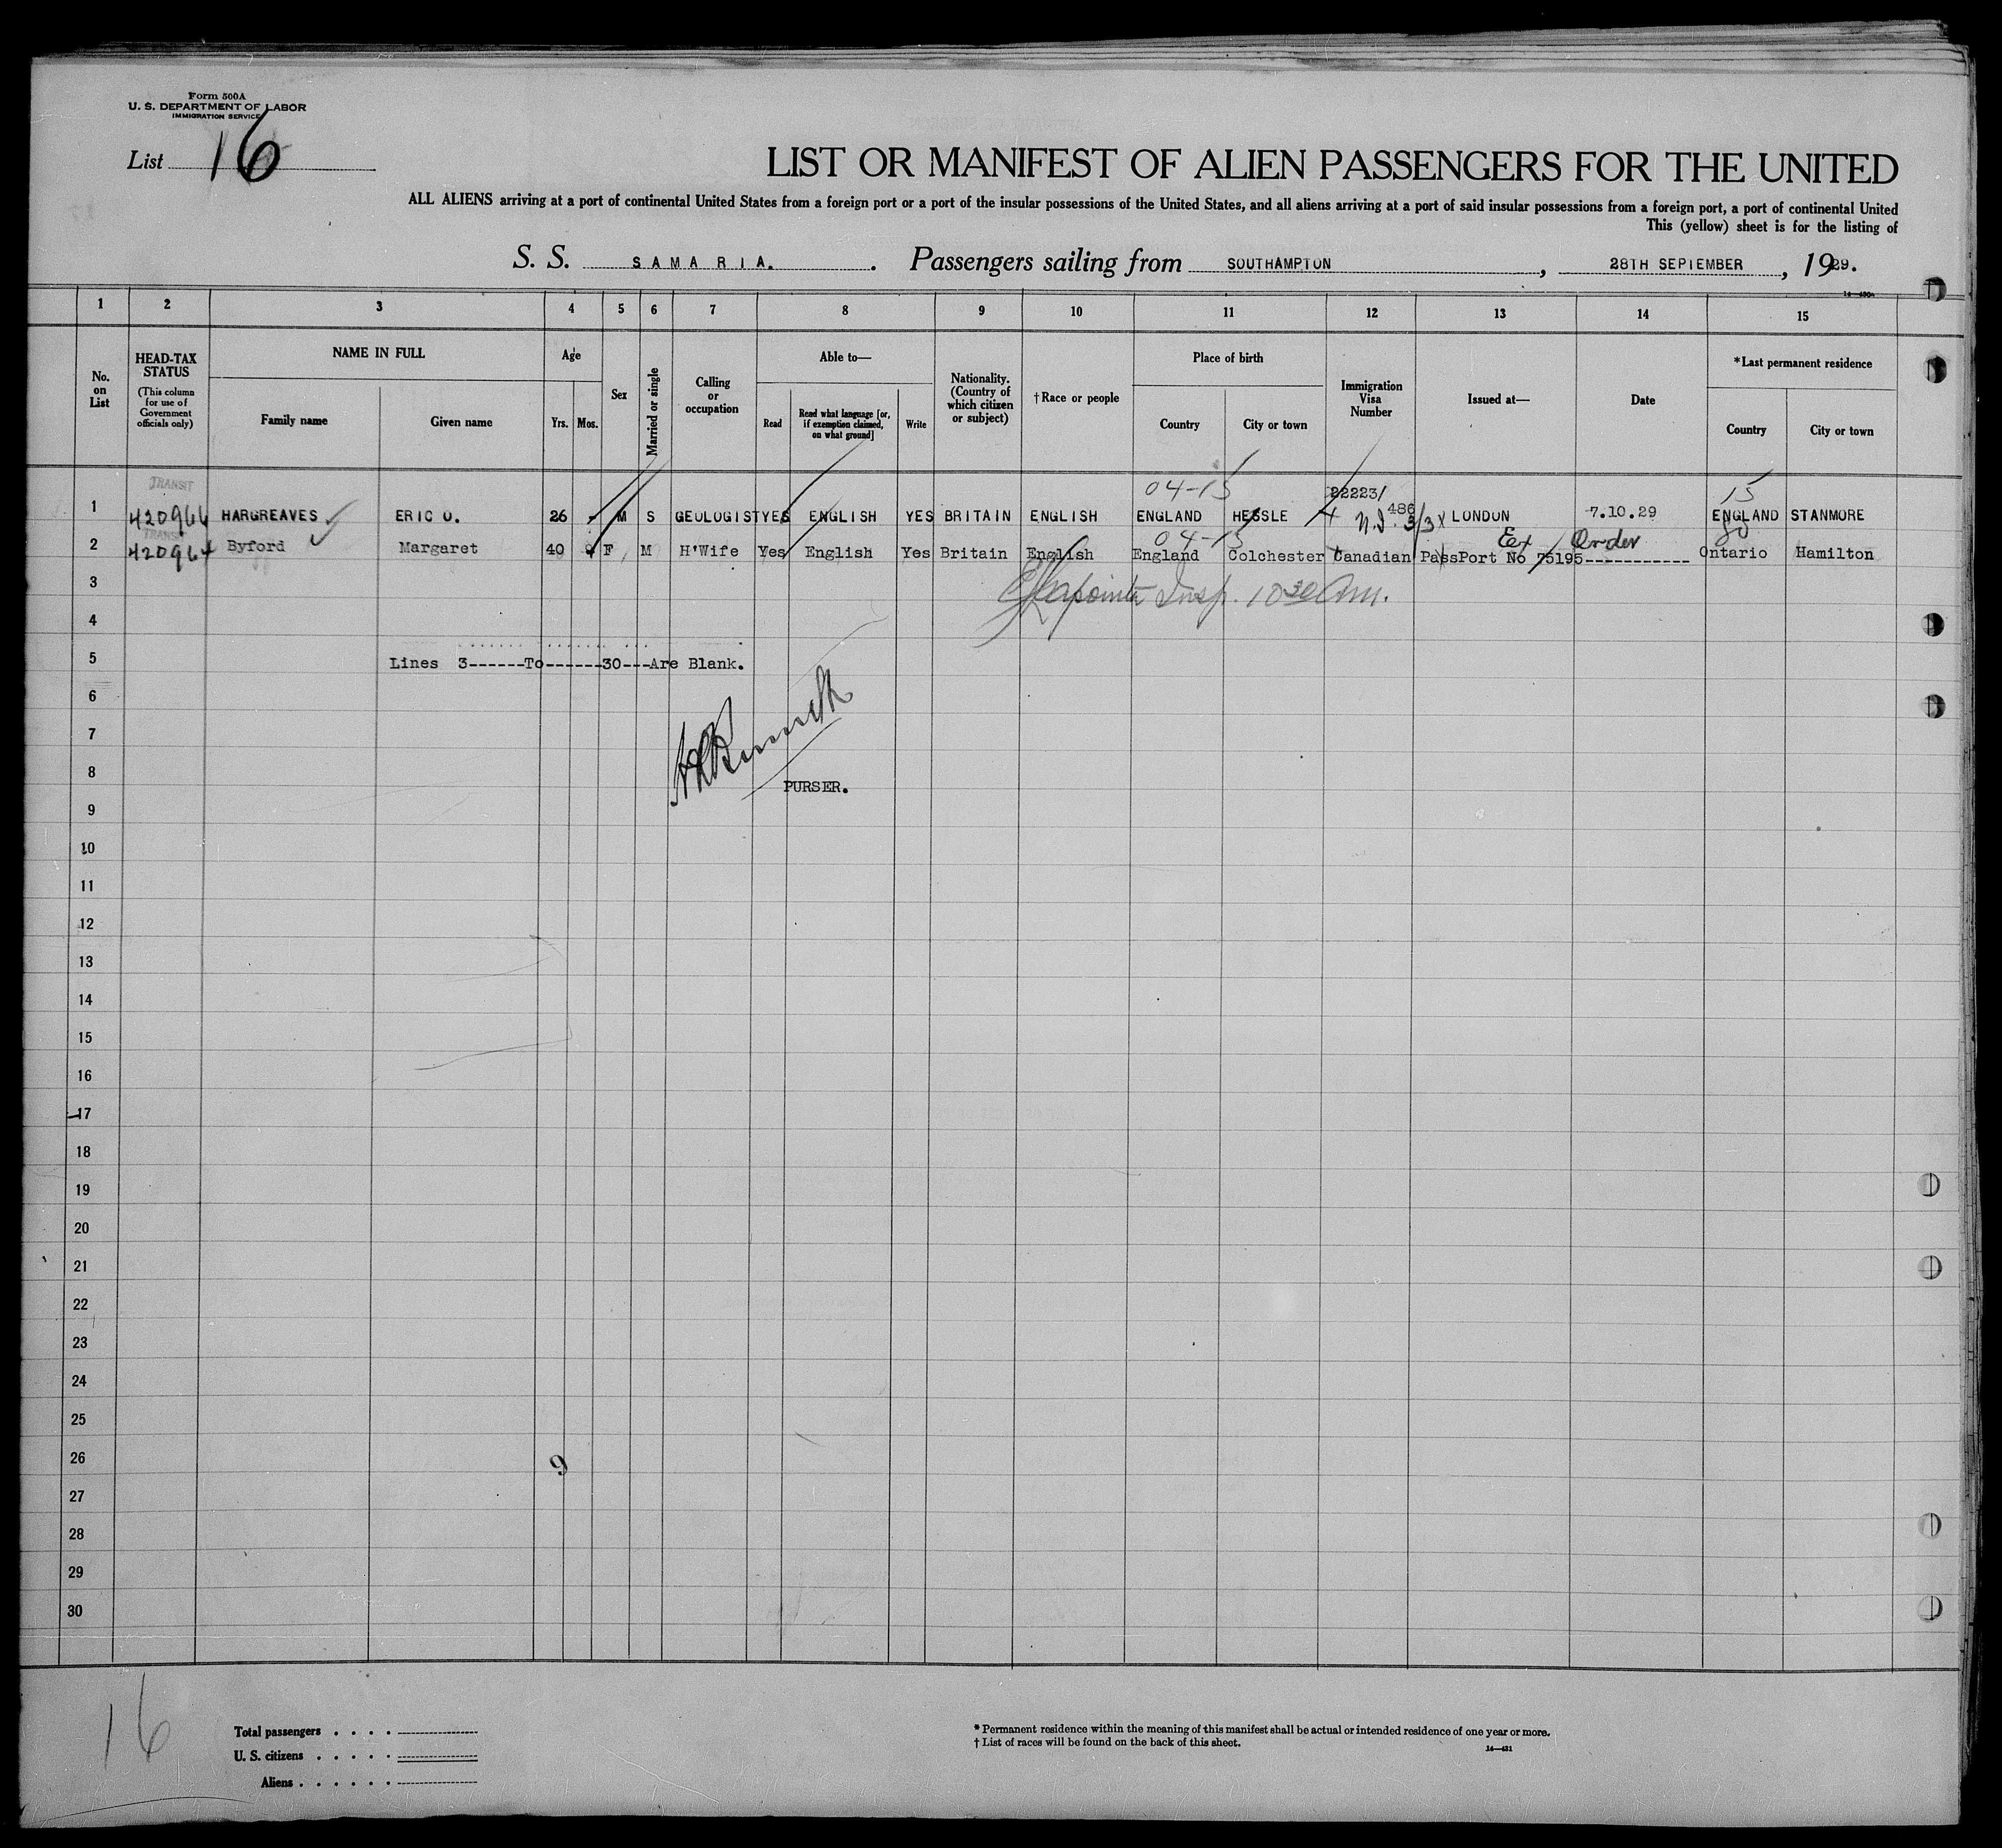 Form 500A
U. S. DEPARTMENT OF LABOR
IMMIGRATION SERVICE
List 16
LIST OR MANIFEST OF ALIEN PASSENGERS FOR THE UNITED
ALL ALIENS arriving at a port of continental United States from a foreign port or a port of the insular possessions of the United States, and all aliens arriving at a port of said insular possessions from a foreign port, a port of continental United
This (yellow) sheet is for the listing of
S. S. SAMARIA. Passengers sailing from SOUTHAMPTON, 28TH SEPTEMBER, 1929.
1 2 3 4 5 6 7 8 9 10 11 12 13 14 15
No. on List
HEAD-TAX STATUS
(This column for use of Government officials only)
NAME IN FULL
Family name
Given name
Age
Yrs. Mos.
Sex
Married or single
Calling or occupation
Able to—
Read
Read what language [or, if exemption claimed, on what ground]
Write
Nationality. (Country of which citizen or subject)
†Race or people
Place of birth
Country
City or town
Immigration Visa Number
Issued at—
Date
*Last permanent residence
Country
City or town
TRANSIT 04-15 22223/ 15
1 HARGREAVES ERIC O. 26 - M S GEOLOGIST YES ENGLISH YES BRITAIN ENGLISH ENGLAND HESSLE 486 LONDON 7.10.29 ENGLAND STANMORE
TRANSIT 04-15 Ex Order
2 420964 Byford Margaret 40 F M H'Wife Yes English Yes Britain English England Colchester Canadian PassPort No 75195----------- Ontario Hamilton
3 Insp. 10 30 Am.
4
5 Lines 3------To------30---Are Blank.
6
7
8 PURSER.
9
10
11
12
13
14
15
16
17
18
19
20
21
22
23
24
25
26 9
27
28
29
30
16
Total passengers . . . .
U. S. citizens . . . . .
Aliens . . . . . .
* Permanent residence within the meaning of this manifest shall be actual or intended residence of one year or more.
† List of races will be found on the back of this sheet.
14—431